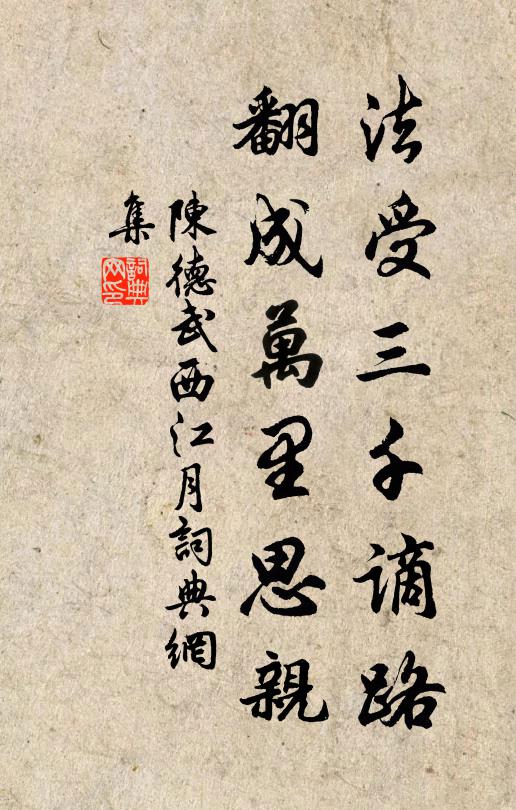 法受三千謫路
翻成萬里思親
陳德武西江月詞典網
集
詞典
网印